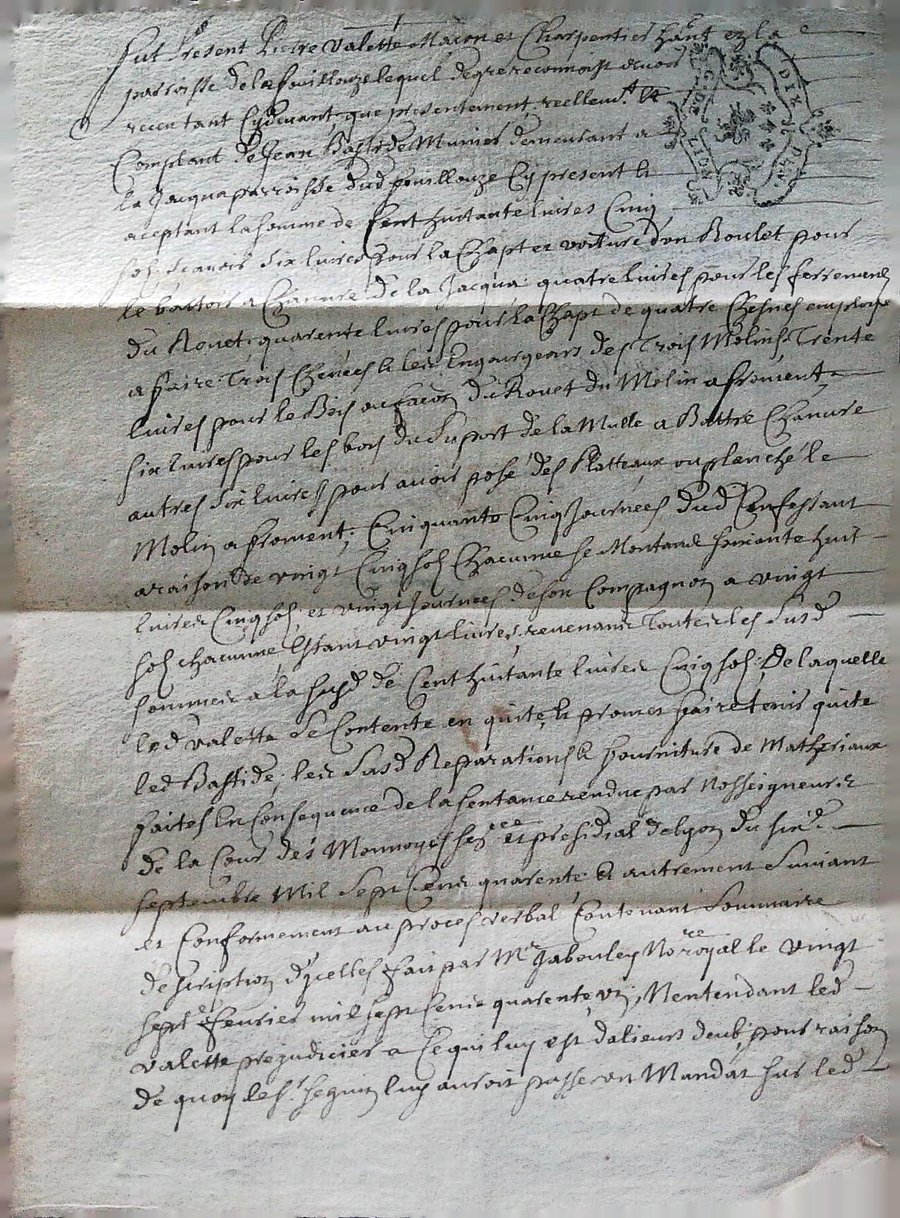 Fut présent Pierre Valette Macon et Charpentier hant en la
parroisse de la fouillouze lequel de gré reconnoist avoir
receu tant cydevant que presentement reellemt. &
Comptant de Jean Bastide Munier demeurant a
la Jacqua parroisse dud fouillouze Cy present &
aceptant la somme de Cent huitante livres Cinq
sols scavoir six livres pour la Chapt et voiture d'un Roulet pour
le battoir a Chanvre de la Jacqua quatre livres pour les ferrements
du Rouet; quarente livres pour la Chapt de quatre Chesnes employés
a faire Trois Chenées & les Engourgeurs des Trois Molins Trente
livres pour le Bois ou façon du Rouet du Molin a froment,
six livres pour les bois du Suport de la Mulle a Battre Chanvre
autres six livres pour avoir posé des Platteaux ou planché le
Molin a froment; Cinquante Cinq Journées dud Confessant
a raison de vingt Cinq sols Chacunne se Montant soixante huit
livres Cinq sols, et vingt Journées de son Compagnon a vingt
sols chacunne Estant vingt livres, revenant Toutes les susd
sommes a la susd de Cent huitante livres Cinq sols; De laquelle
led valette se Contente en quite & promet faire tenir quite
led Bastide; les susd Reparations & fourniture de Matheriaux
faites En Consequence de la sentance rendue par Nosseigneurs
de la Cour des Monnoyes senee et presidial de Lyon du six
septembre Mil Sept Cent quarente & autrement suivant
et Conformement au proces verbal Contenant Sommaire
description d'ycelles fait par Mr Jabouley Nore royal le vingt
sept fevrier mil sept Cent quarente un, N'entendant led
valette prejudicier a Ce qui luy est d'alieurs deub, pour raison
de quoy le sr. seguin luy auroit passé un Mandat sur led
DIX DEN.
LION